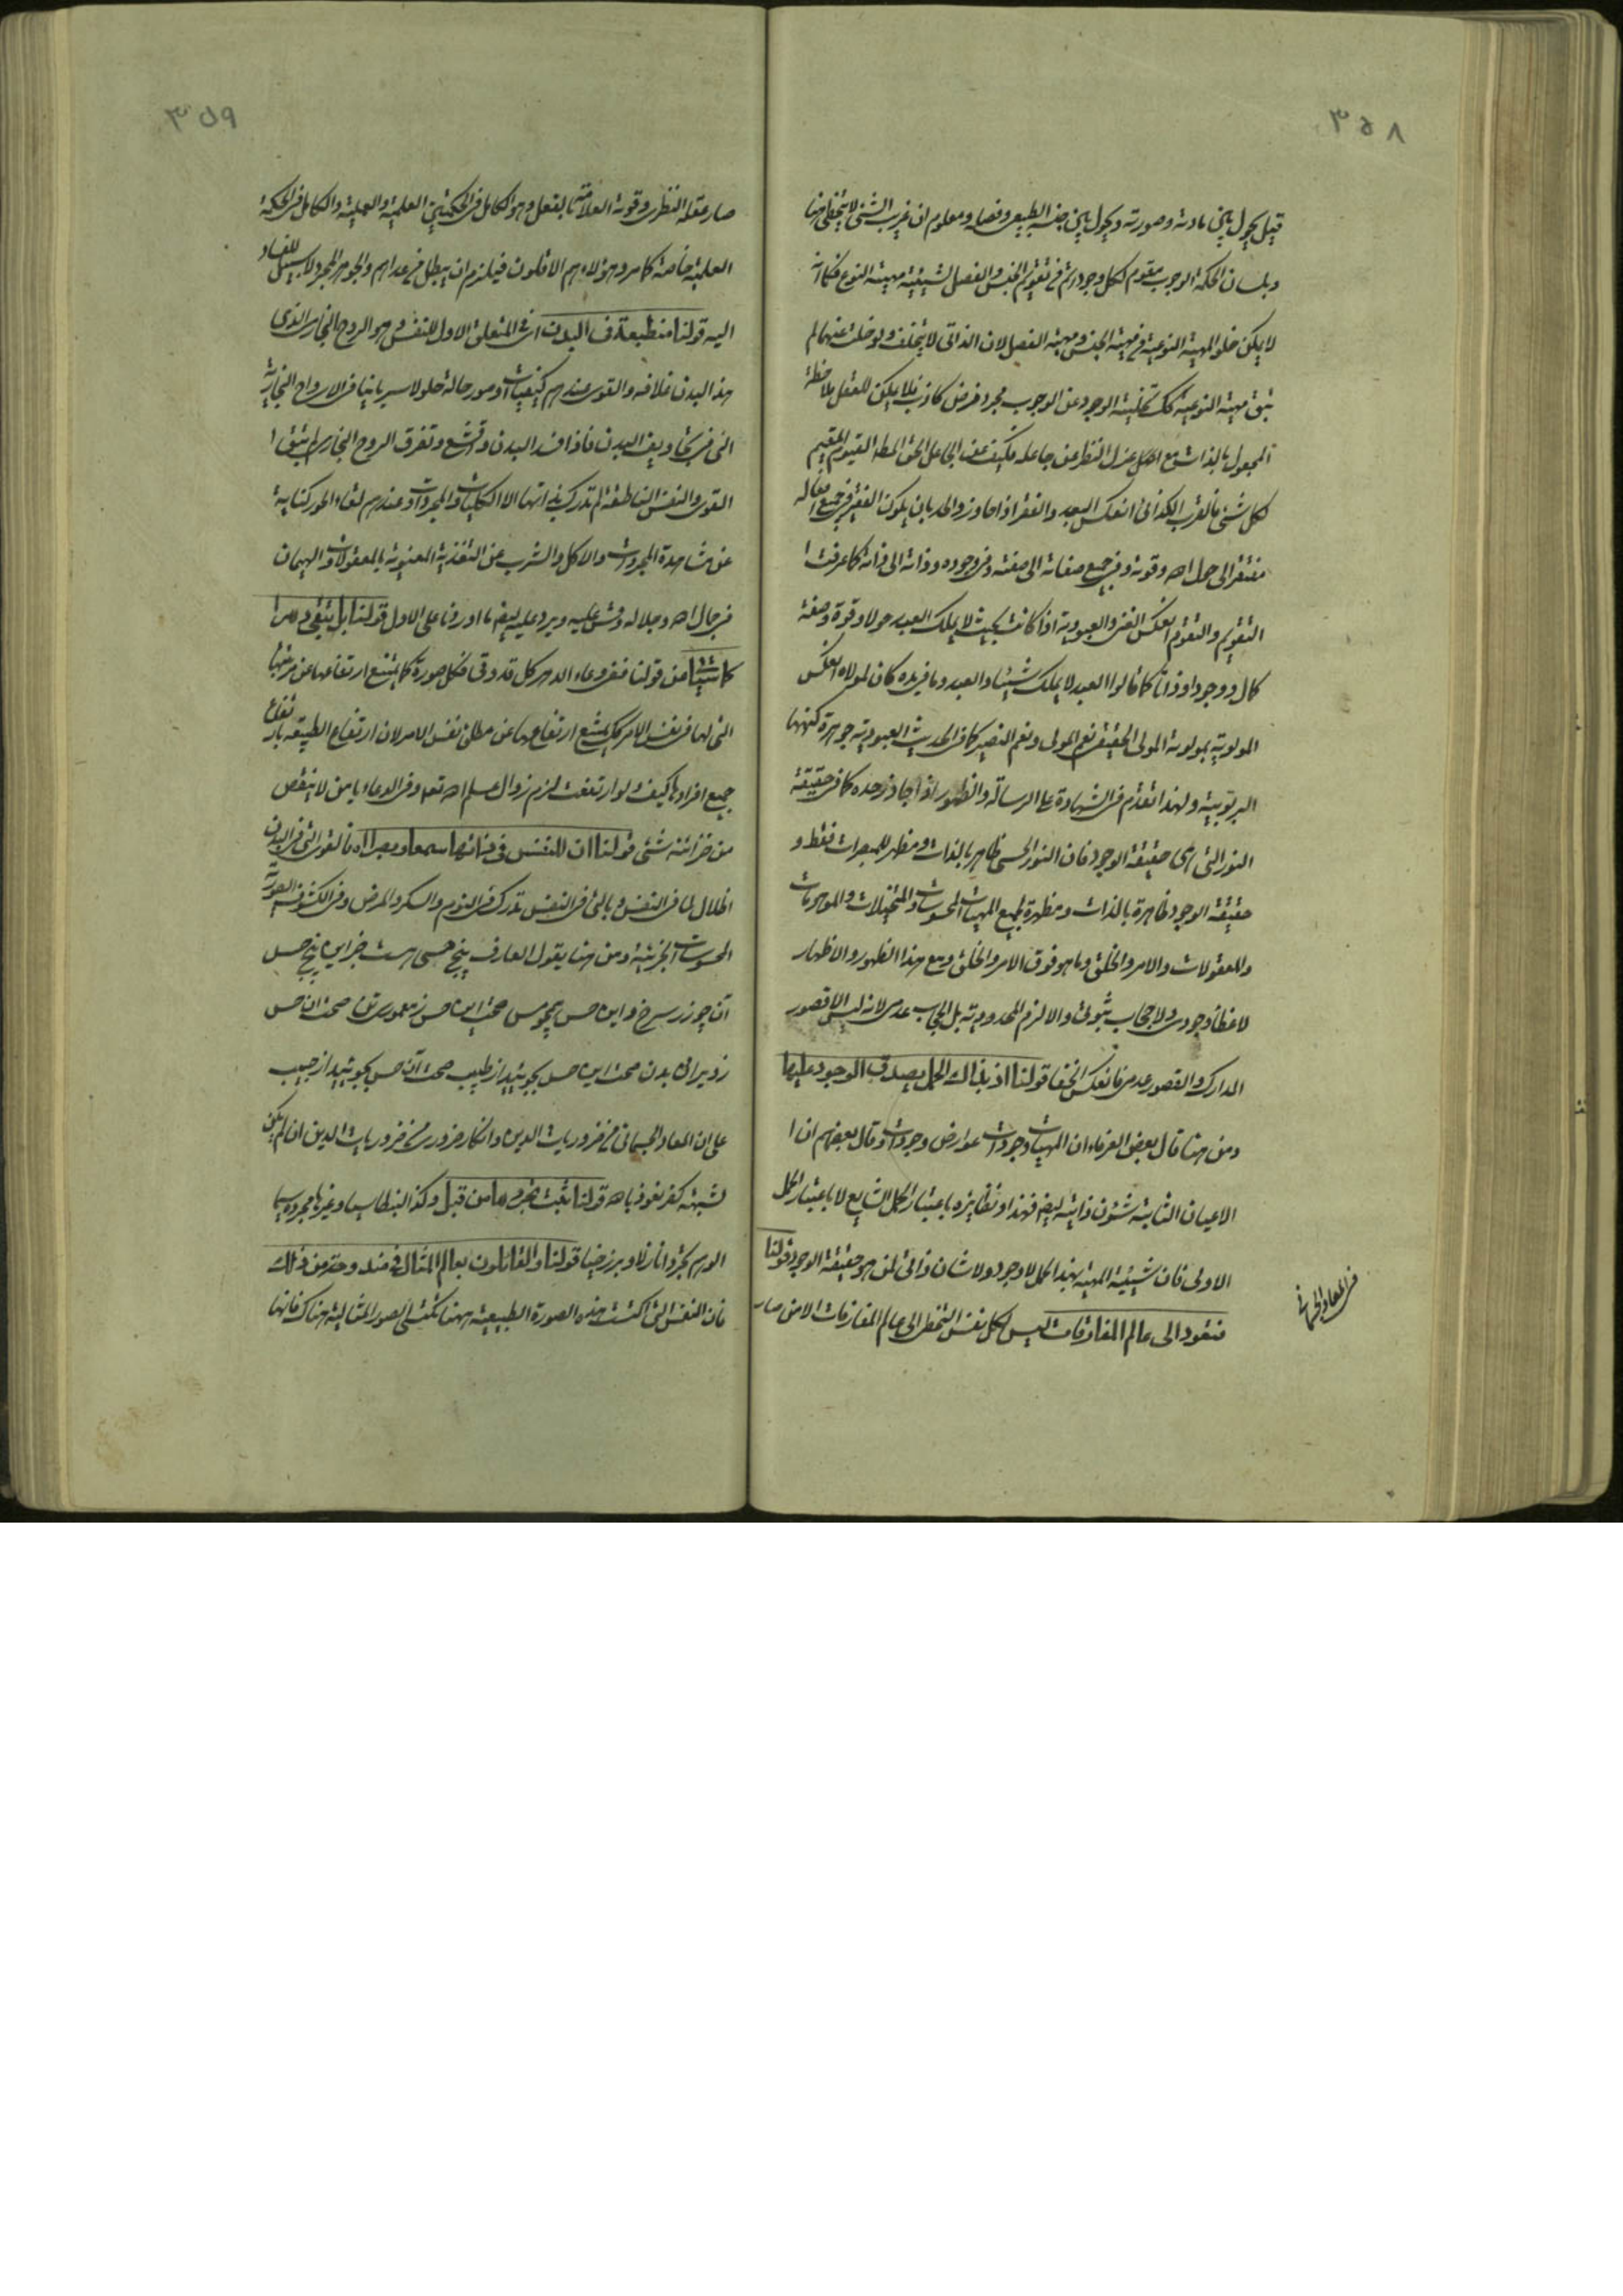 ٣٥٨
قيل يحول بين مادته وصورته ويحول بين جنسه الطبيعي وفصله ومعلوم ان غريب الشئ لا يتخلل منها
وبلسان الحكمة الوجوب مقوم لكل وجود اتم من تقويم الجنس والفصل لشيئية مهية النوع فكما انه
لا يمكن خلو المهية النوعية عن مهية الجنس ومهية الفصل لان الذاتي لا يتخلف ولو خلت عنهما لم
تبق مهية النوعية كك تخلية الوجود عن الوجوب مجرد فرض كاذب فلا يمكن للعقل ملاحظة
المجعول بالذات مع عزل النظر عن جاعله فكيف عن الجاعل الحق المط القيوم المقيم
لكل شئ فالقرب الكذائي انعكس البعد والفقر اذا جاوز الحد بان يكون الفقير في جميع افعاله
مفتقرا الى حول الله وقوته وفي جميع صفاته الى صفته وفي وجوده وذاته الى ذاته كما عرفت ا
التقويم والتقوم انعكس الغنى والعبودية اذا كانت بحيث لا يملك العبد حولا وقوة وصفة
كمال ووجودا وذاتا كما قالوا العبد لا يملك شيئا والعبد وما في يده كان لمولاه انعكس
المولوية بمولوية المولى الحقيقي نعم المولى ونعم النصير كما في الحديث العبودية جوهرة كنهها
الربوبية ولهذا تقدم في الشهادة على الرسالة والظهور اذا جاوز حده كما في حقيقة
النور التي هي حقيقة الوجود فان النور الحسي ظاهر بالذات ومظهر للمبصرات فقط و
حقيقة الوجود ظاهرة بالذات ومظهرة لجميع المهيات المحسوسات والمتخيلات والموهومات
والمعقولات والامر والخلق وما هو فوق الامر والخلق ومع هذا الظهور والاظهار
لا غطاء وجودي ولا حجاب ثبوتي والا لزم المحدودية بل الحجاب عدمي لانه ليس الا قصور
المدارك والقصور عدمي فانعكس الخفا قولنا اذ بذاك الحمل يصدق الوجود عليها
ومن هنا قال بعض العرفاء ان المهيات وجودات عوارض وجودات وقال بعضهم ان ا
الاعيان الثابتة شئون ذاتية ايض فهذا ونظايره باعتبار الحمل الشايع لا باعتبار الحمل
الاولى فان شيئية المهية بهذا الحمل لا وجود ولا شان ذاتي لمن هو حقيقة الوجود قولنا
فتقود الى عالم المفارقات ليس لكل نفس التخطى الى عالم المفارقات الا من صار
في المعاد الجسماني
٣٥٩
صار عقله النظري وقوته العلامة بالفعل وهو الكامل في الحكمتين العلمية والعملية والكامل في الحكمة
العلمية خاصة كما مر وهؤلاء هم الاقلون فيلزم ان يبطل من عداهم والجوهر المجرد لا سبيل للفساد
اليه قولنا منطبعة في البدن اي المتعلق الاول للنفس وهو الروح البخاري الذي
هذا البدن غلافه والقوى عندهم كيفيات او صور حالة حلولا سريانيا في الارواح البخارية
التي في تجاويف البدن فاذا فسد البدن وقشع وتفرق الروح البخاري لم تبق ا
القوى والنفس الناطقة لم تدرك بذاتها الا الكليات والمجردات وعندهم لقاء الحور كناية
عن مشاهدة المجردات والاكل والشرب عن التغذية المعنوية بالمعقولات والهيمان
في جمال الله وجلاله وقس عليه ويرد عليه ايض ما اوردنا على الاول قولنا بل يبقى دهرا
كما سيتنا من قولنا ففي وعاء الدهر كل قد وقى فكل صورة كما يمتنع ارتفاعها عن مرتبتها
التي لها في نفس الامر كك يمتنع ارتفاعها عن مطلق نفس الامر لان ارتفاع الطبيعة بارتفاع
جميع افرادها كيف لو ارتفعت لزم زوال علم الله تعه وفي الدعاء يا من لا ينقص
من خزائنه شئ قولنا ان للنفس في ذاتها سمعا وبصرا الخ فالقوى التي في البدن
اظلال لما في النفس وبالتي في النفس تدرك في النوم والسكر والمرض وفي الكشوف الصورية
المحسوسات الجزئية ومن هنا يقول العارف پنج حسى هست جز اين پنج حس
آن چو زر سرخ و اين حس همچو مس صحت اين حس ز معموري تن صحت ان حس
ز ويراني بدن صحت اين حس بجوئيد از طبيب صحت آن حس بجوئيد از حبيب
على ان المعاد الجسماني من ضروريات الدين وانكار ضروري من ضروريات الدين ان لم يكن
لشبهة كفر نعوذ بالله قولنا يثبت تجردها من قبل وكذا البنطاسيا وغيرها مجردة سيما
الوهم تجردا نازلا وبرزخيا قولنا والقائلون بعالم المثال في مندوحة من ذلك
فان النفس التي اكتست هذه الصورة الطبيعية ههنا تكتسى الصور المثالية هناك فانها